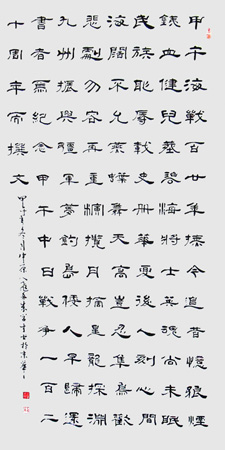 甲午海戰百廿集據今追昔憶狼煙
鐵血健兒葬碧海將士英魂尚未眠
民族恥辱載史冊華夏後人刻心間
海闊不允舞天高豈忍鳥歡
悲劇勿容再重攬月摘星探淵
九州振興疆軍夢釣島倭人早歸還
書者為紀念甲午中日戰爭一百二
十周年而撰文
甲午年冬月於京華